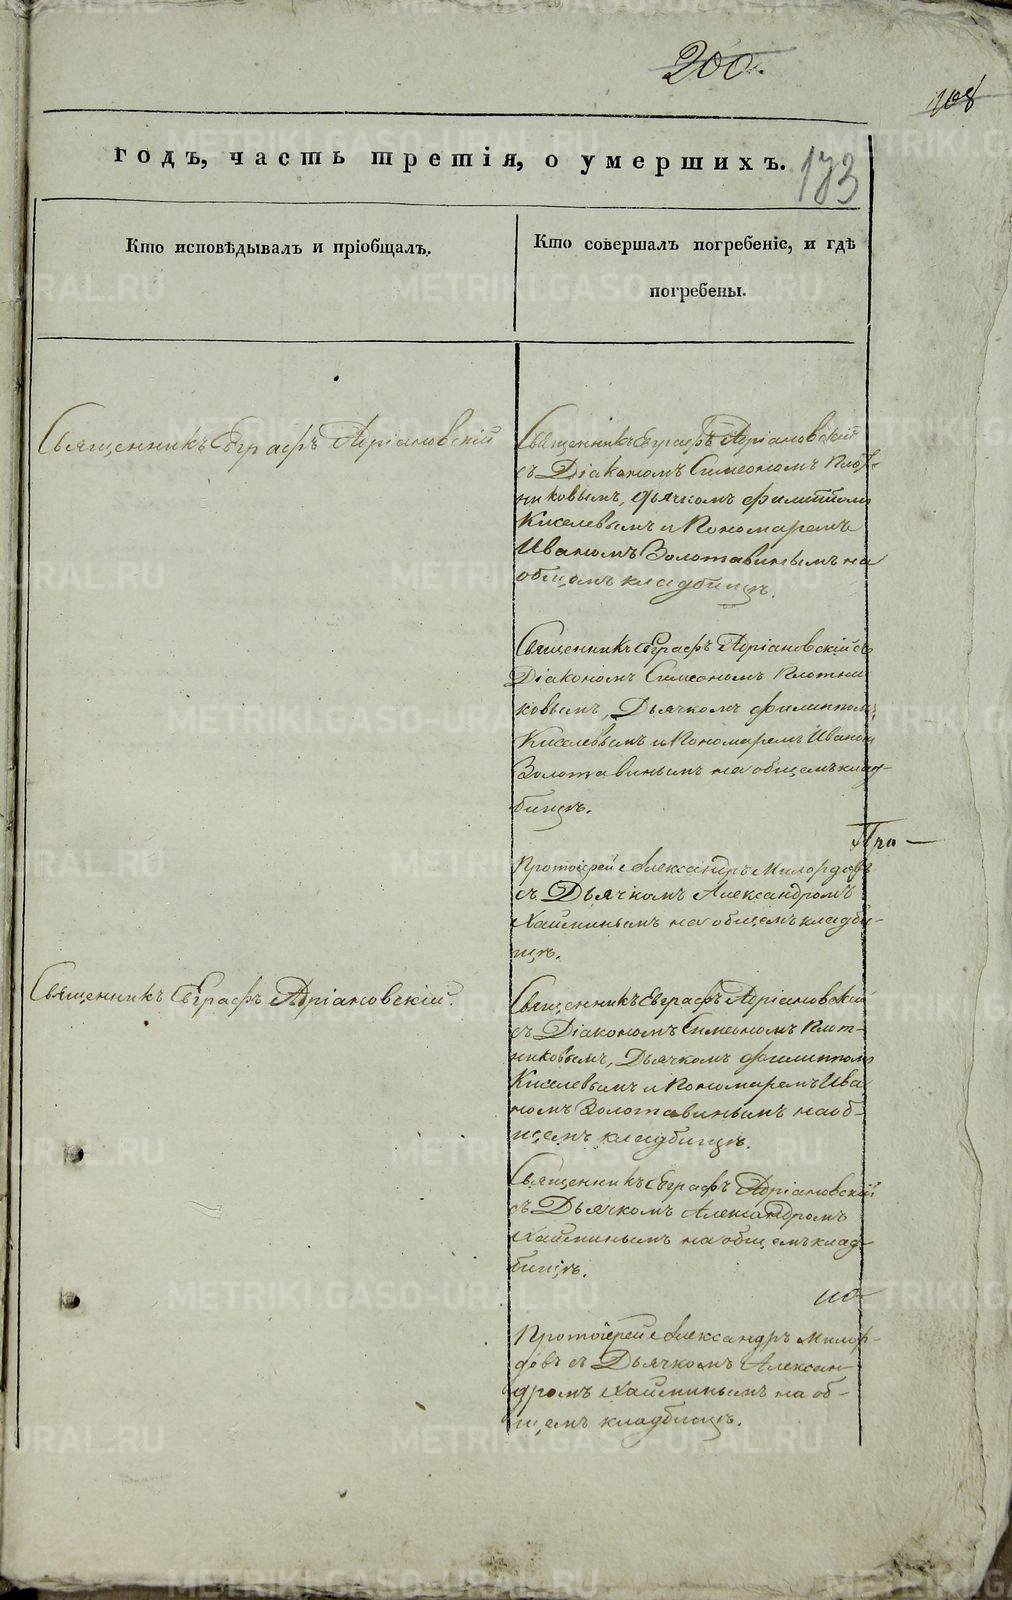 200.
108
годъ, часть третія, о умершихъ.
173
Кто исповѣдывалъ и пріобщалъ.
Кто совершалъ погребеніе, и гдѣ
погребены.
Священникъ Евграфъ Адріановскій
Священникъ Евграфъ Адріановскій
съ Діакономъ Симеономъ Плот-
никовымъ, дьячкомъ Филиппомъ
Киселевымъ и Пономаремъ
Иваномъ Золотавинымъ на
общемъ кладбищѣ.
Священникъ Евграфъ Адріановскій съ
Діакономъ Симеономъ Плотни
ковымъ, Дьячкомъ Филиппомъ
Киселевымъ и Пономаремъ Иваномъ
Золотавинымъ на общемъ клад-
бищѣ.
Про-
Протоіерей Александръ Милордовъ
съ Дьячкомъ Александромъ
Хайминымъ на общемъ кладби-
щѣ.
Священникъ Евграфъ Адріановскій.
Священникъ Евграфъ Адріановскій
съ Діакономъ Симеономъ Плот-
никовымъ, Дьячкомъ Филиппомъ
Киселевымъ и Пономаремъ Ива
номъ Золотавинымъ на об-
щемъ кладбищѣ.
Священникъ Евграфъ Адріановскій
съ Дьячкомъ Александромъ
Хайминымъ на общемъ клад-
бищѣ.
Протоіерей Александръ Милор-
довъ съ Дьячкомъ Алексан
дромъ Хайминымъ на об-
щемъ кладбищѣ.
METRIKI.GASO-URAL.RU